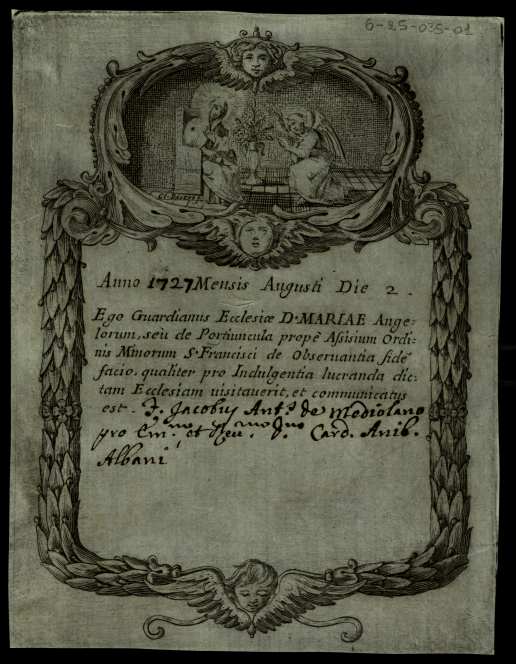 6-25-035-01
Anno 1727 Mensis Augusti Die 2.
Ego Guardianus Ecclesiæ D. MARIAE Ange-
lorum, seù de Portiuncula propè Assisium Ordi-
nis Minorum S. Francisci de Observantia fidē
facio, qualiter pro Indulgentia lucranda dic-
tam Ecclesiam uisitauerit, et communicatus
est. F. Jacobus Ant.s de Mediolano
pro Em.mo et Reu.mo Dno D. Card. Anib.
Albani